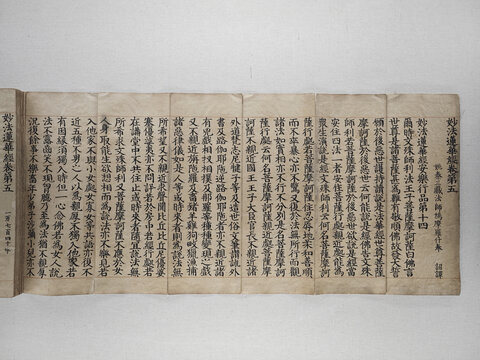 妙法蓮華經卷第五
姚秦三藏法師鳩摩羅什奉 詔譯
妙法蓮華經安樂行品第十四
爾時文殊師利法王子菩薩摩訶薩白佛言
世尊是諸菩薩甚為難有敬順佛故發大誓
願於後惡世護持讀誦說是法華經世尊菩薩
摩訶薩於後惡世云何能說是經佛告文殊
師利若菩薩摩訶薩於後惡世欲說是經當
安住四法一者安住菩薩行處親近處能為
眾生演說是經文殊師利云何名菩薩摩訶
薩行處若菩薩摩訶薩住忍辱地柔和善順
而不卒暴心亦不驚又復於法無所行而觀
諸法如實相亦不行不分別是名菩薩摩訶
薩行處云何名菩薩摩訶薩親近處菩薩摩
訶薩不親近國王王子大臣官長不親近諸
外道梵志尼揵子等及造世俗文筆讚詠外
書及路伽耶陀逆路伽耶陀者亦不親近諸
有兇戲相扠相撲及那羅等種種變現之戲
又不親近旃陀羅及畜猪羊雞狗畋獵漁捕
諸惡律儀如是人等或時來者則為說法無
所悕望又不親近求聲聞比丘比丘尼優婆
塞優婆夷亦不問訊若於房中若經行處若
在講堂中不共住止或時來者隨宜說法無
所悕求文殊師利又菩薩摩訶薩不應於女
人身取能生欲想相而為說法亦不樂見若
入他家不與小女處女寡女等共語亦復不
近五種不男之人以為親厚不獨入他家若
有因緣須獨入時但一心念佛若為女人說
法不露齒笑不現胸臆乃至為法猶不親厚
況復餘事不樂畜年少弟子沙彌小兒亦不
妙法蓮華經卷第五